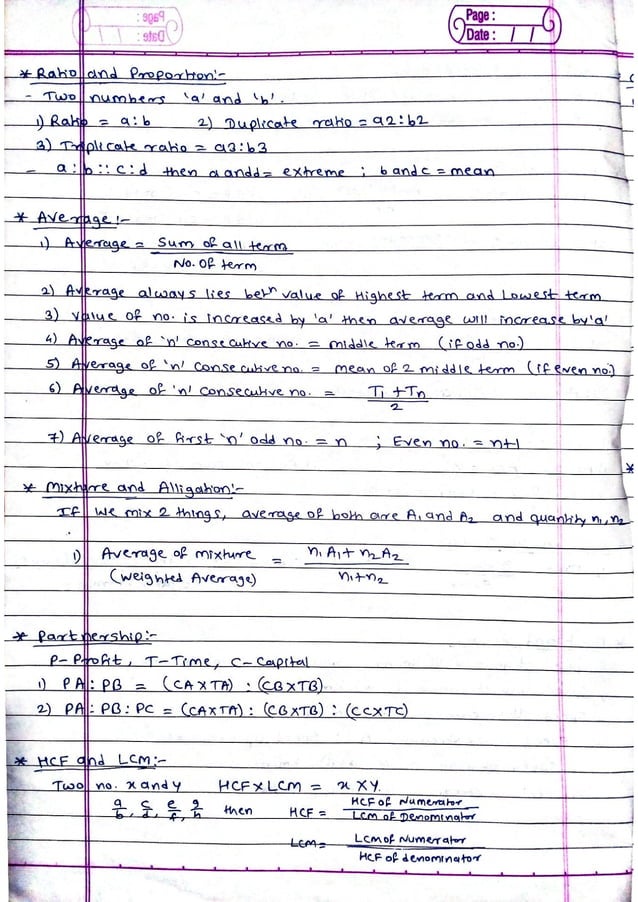 Page :
Date : / /
* Ratio and Proportion:-
- Two numbers 'a' and 'b'.
1) Ratio = a:b 2) Duplicate ratio = a2:b2
3) Triplicate ratio = a3:b3
- a:b::c:d then a and d = extreme ; b and c = mean
* Average:-
1) Average = Sum of all term
No. of term
2) Average always lies betn value of Highest term and Lowest term
3) Value of no. is increased by 'a' then average will increase by 'a'
4) Average of 'n' consecutive no. = middle term (if odd no.)
5) Average of 'n' consecutive no. = mean of 2 middle term (if even no.)
6) Average of 'n' consecutive no. = T1 + Tn
2
7) Average of first 'n' odd no. = n ; Even no. = n+1
* Mixture and Alligation:-
If we mix 2 things, average of both are A1 and A2 and quantity n1, n2
1) Average of mixture = n1A1 + n2A2
(weighted Average) n1+n2
* Partnership:-
P-Profit, T-Time, C-Capital
1) PA : PB = (CA×TA) : (CB×TB)
2) PA : PB : PC = (CA×TA) : (CB×TB) : (CC×TC)
* HCF and LCM:-
Two no. x and y HCF×LCM = x × y.
a/b, c/d, e/f, g/h then HCF = HCF of Numerator
LCM of Denominator
LCM = LCM of Numerator
HCF of denominator